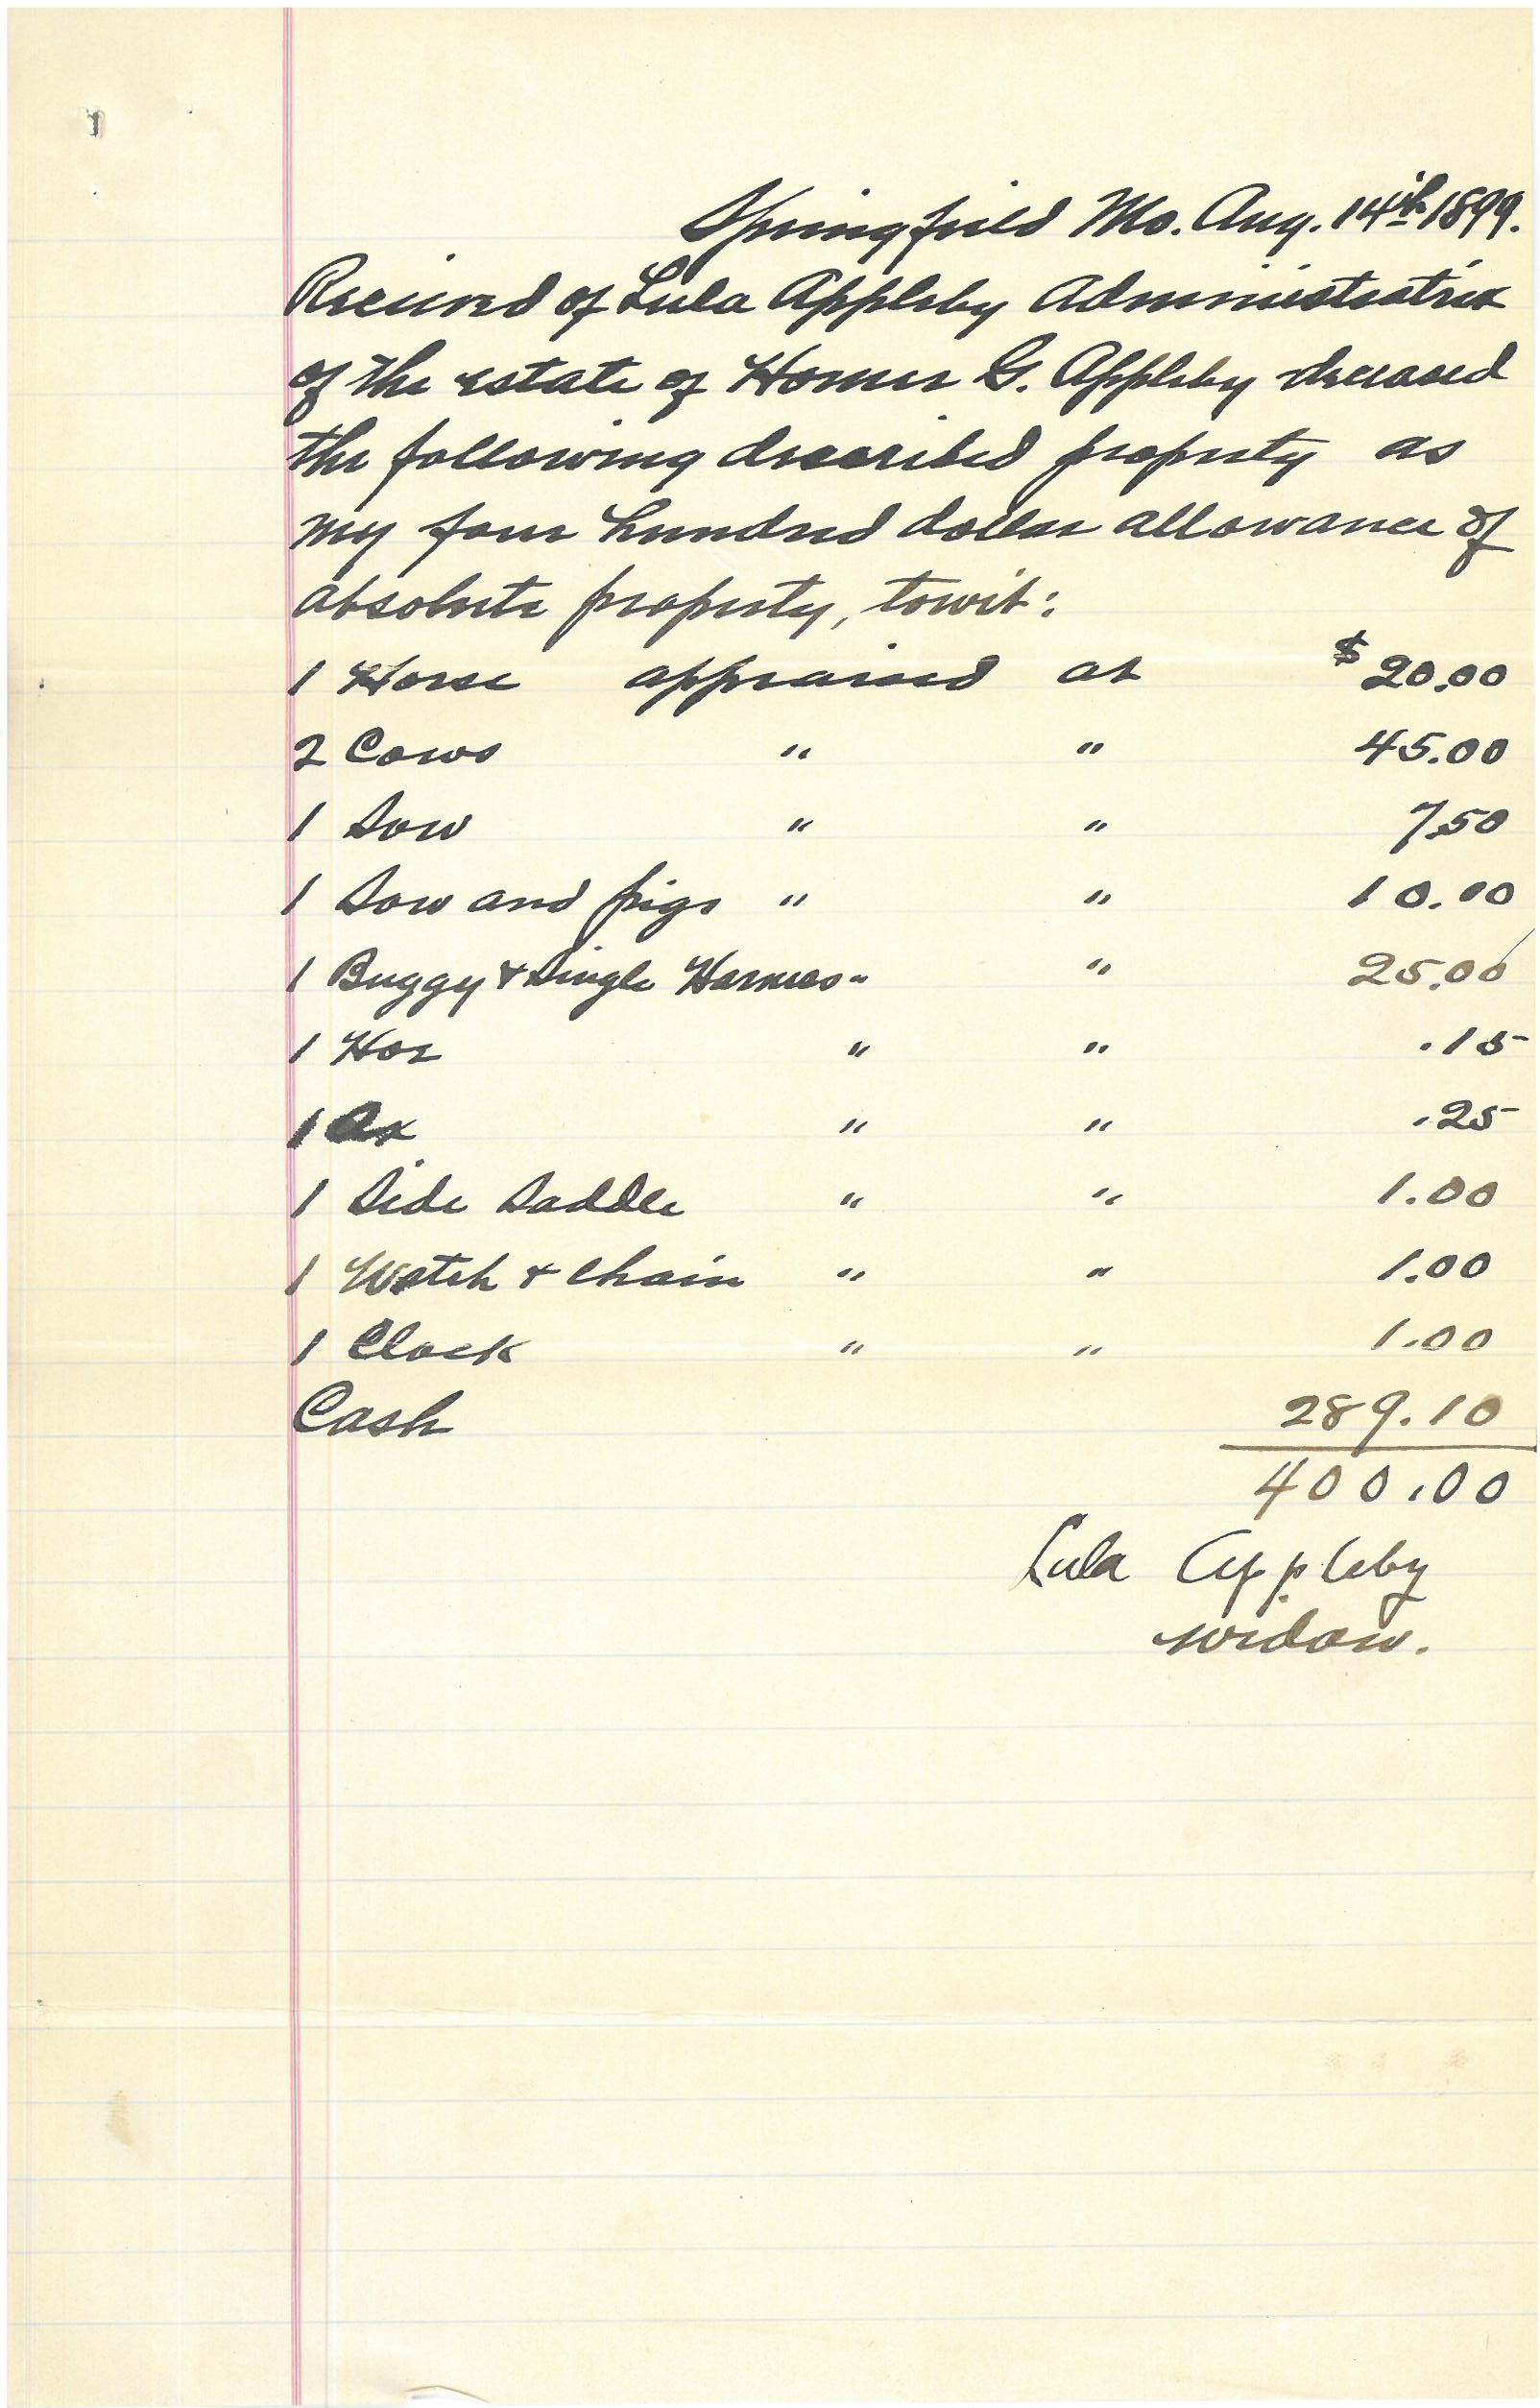 Springfield Mo. Aug. 14th 1899.
Received of Lula Appleby Administratrix
of the estate of Homer G. Appleby deceased
the following described property as
my four hundred dollar allowance of
absolute property, towit:
1 Horse appraised at $20.00
2 Cows " " 45.00
1 Sow " " 7.50
1 Sow and pigs " " 10.00
1 Buggy & Single Harness " " 25.00
1 Hoe " " .15
1 Ax " " .25
1 Side Saddle " " 1.00
1 Watch & Chain " " 1.00
1 Clock " " 1.00
Cash 289.10
400.00
Lula Appleby
widow.